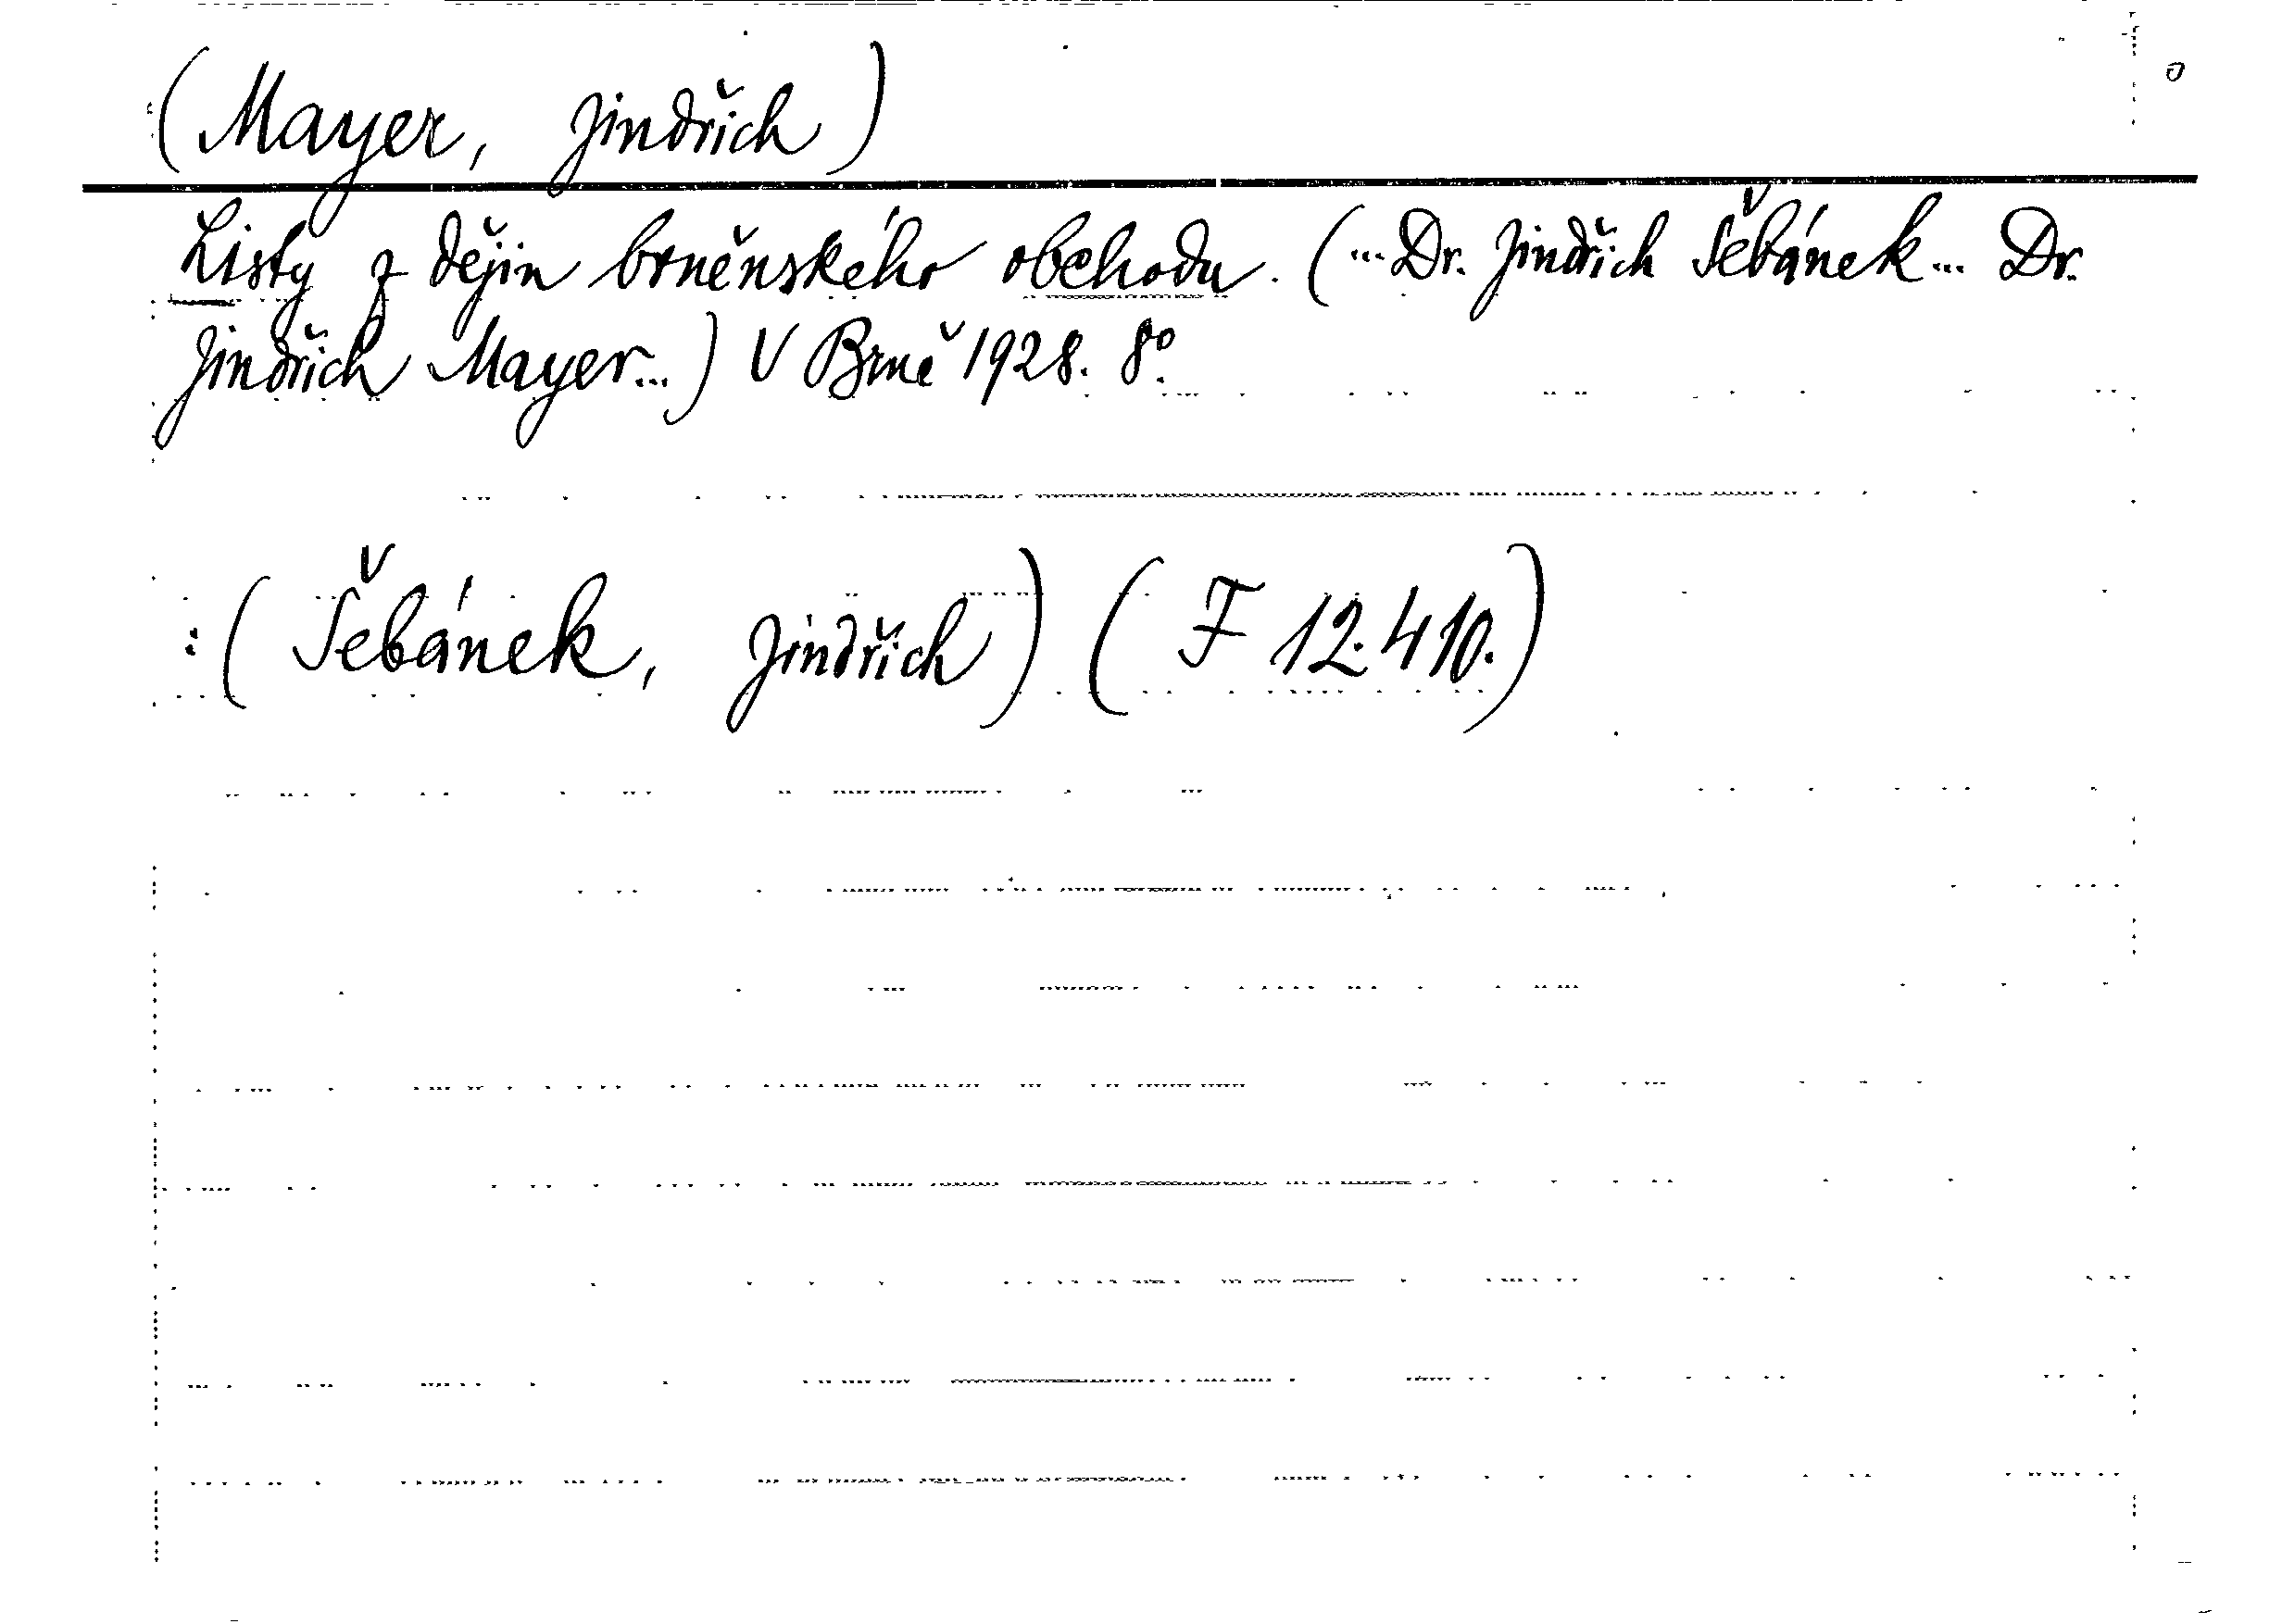 (Mayer, Jindřich)
Listy z dějin brněnského obchodu. (... Dr. Jindřich Šebánek ... Dr.
Jindřich Mayer ...) V Brně 1928. 8°.
: (Šebánek, Jindřich) (F 12.410.)